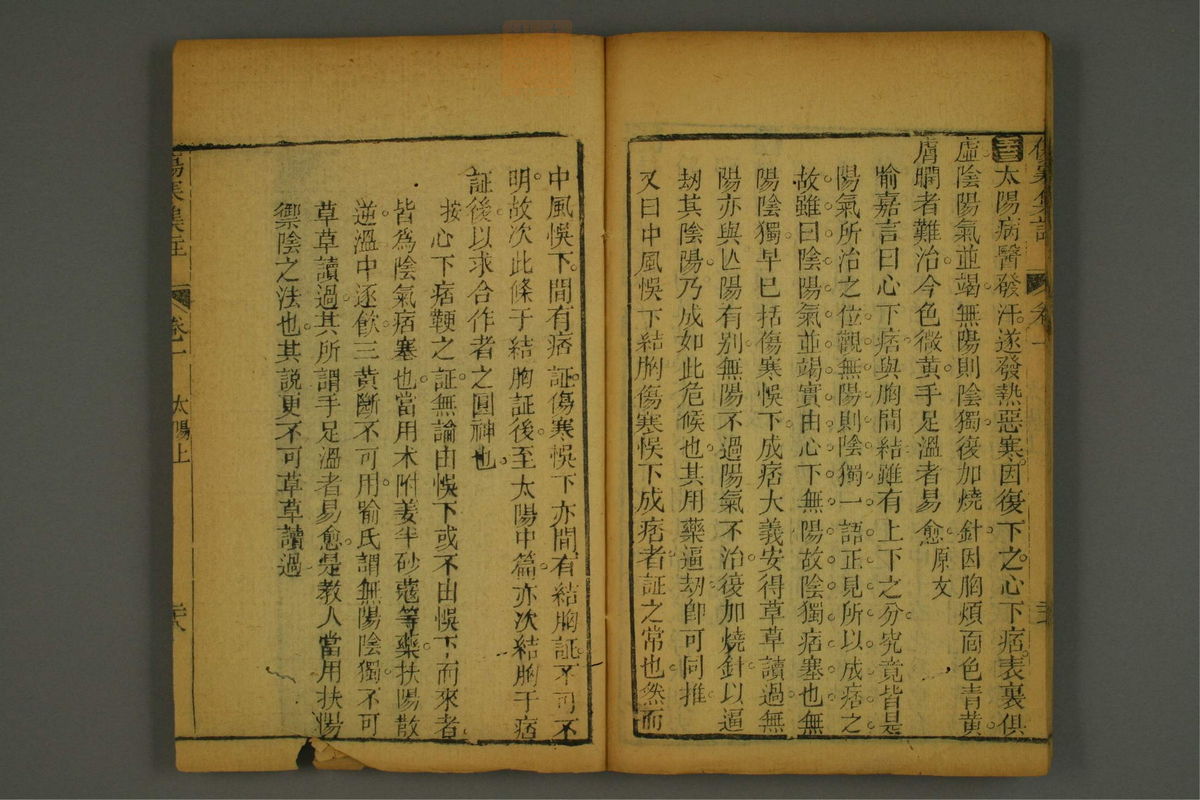 傷寒集註 卷一
太陽病醫發汗遂發熱惡寒因復下之心下痞表裏俱
虛陰陽氣並竭無陽則陰獨復加燒針因胸煩面色青黃
膚瞤者難治今色微黃手足溫者易愈原文
喻嘉言曰心下痞與胸間結雖有上下之分究竟皆是
陽氣所治之位觀無陽則陰獨一語正見所以成痞之
故雖曰陰陽氣並竭實由心下無陽故陰獨痞塞也無
陽陰獨早已括傷寒悞下成痞大義安得草草讀過無
陽亦與亾陽有別無陽不過陽氣不治復加燒針以逼
刼其陰陽乃成如此危候也其用藥逼刼卽可同推
又曰中風悞下結胸傷寒悞下成痞者証之常也然而
中風悞下間有痞証傷寒悞下亦間有結胸証不可不
明故次此條于結胸証後至太陽中篇亦次結胸于痞
証後以求合作者之圓神也
按心下痞鞕之証無論由悞下或不由悞下而來者
皆爲陰氣痞塞也當用朮附姜半砂蔻等藥扶陽散
逆溫中逐飮三黃斷不可用喻氏謂無陽陰獨不可
草草讀過其所謂手足溫者易愈是教人當用扶陽
禦陰之法也其說更不可草草讀過
傷寒集註 卷一 太陽上